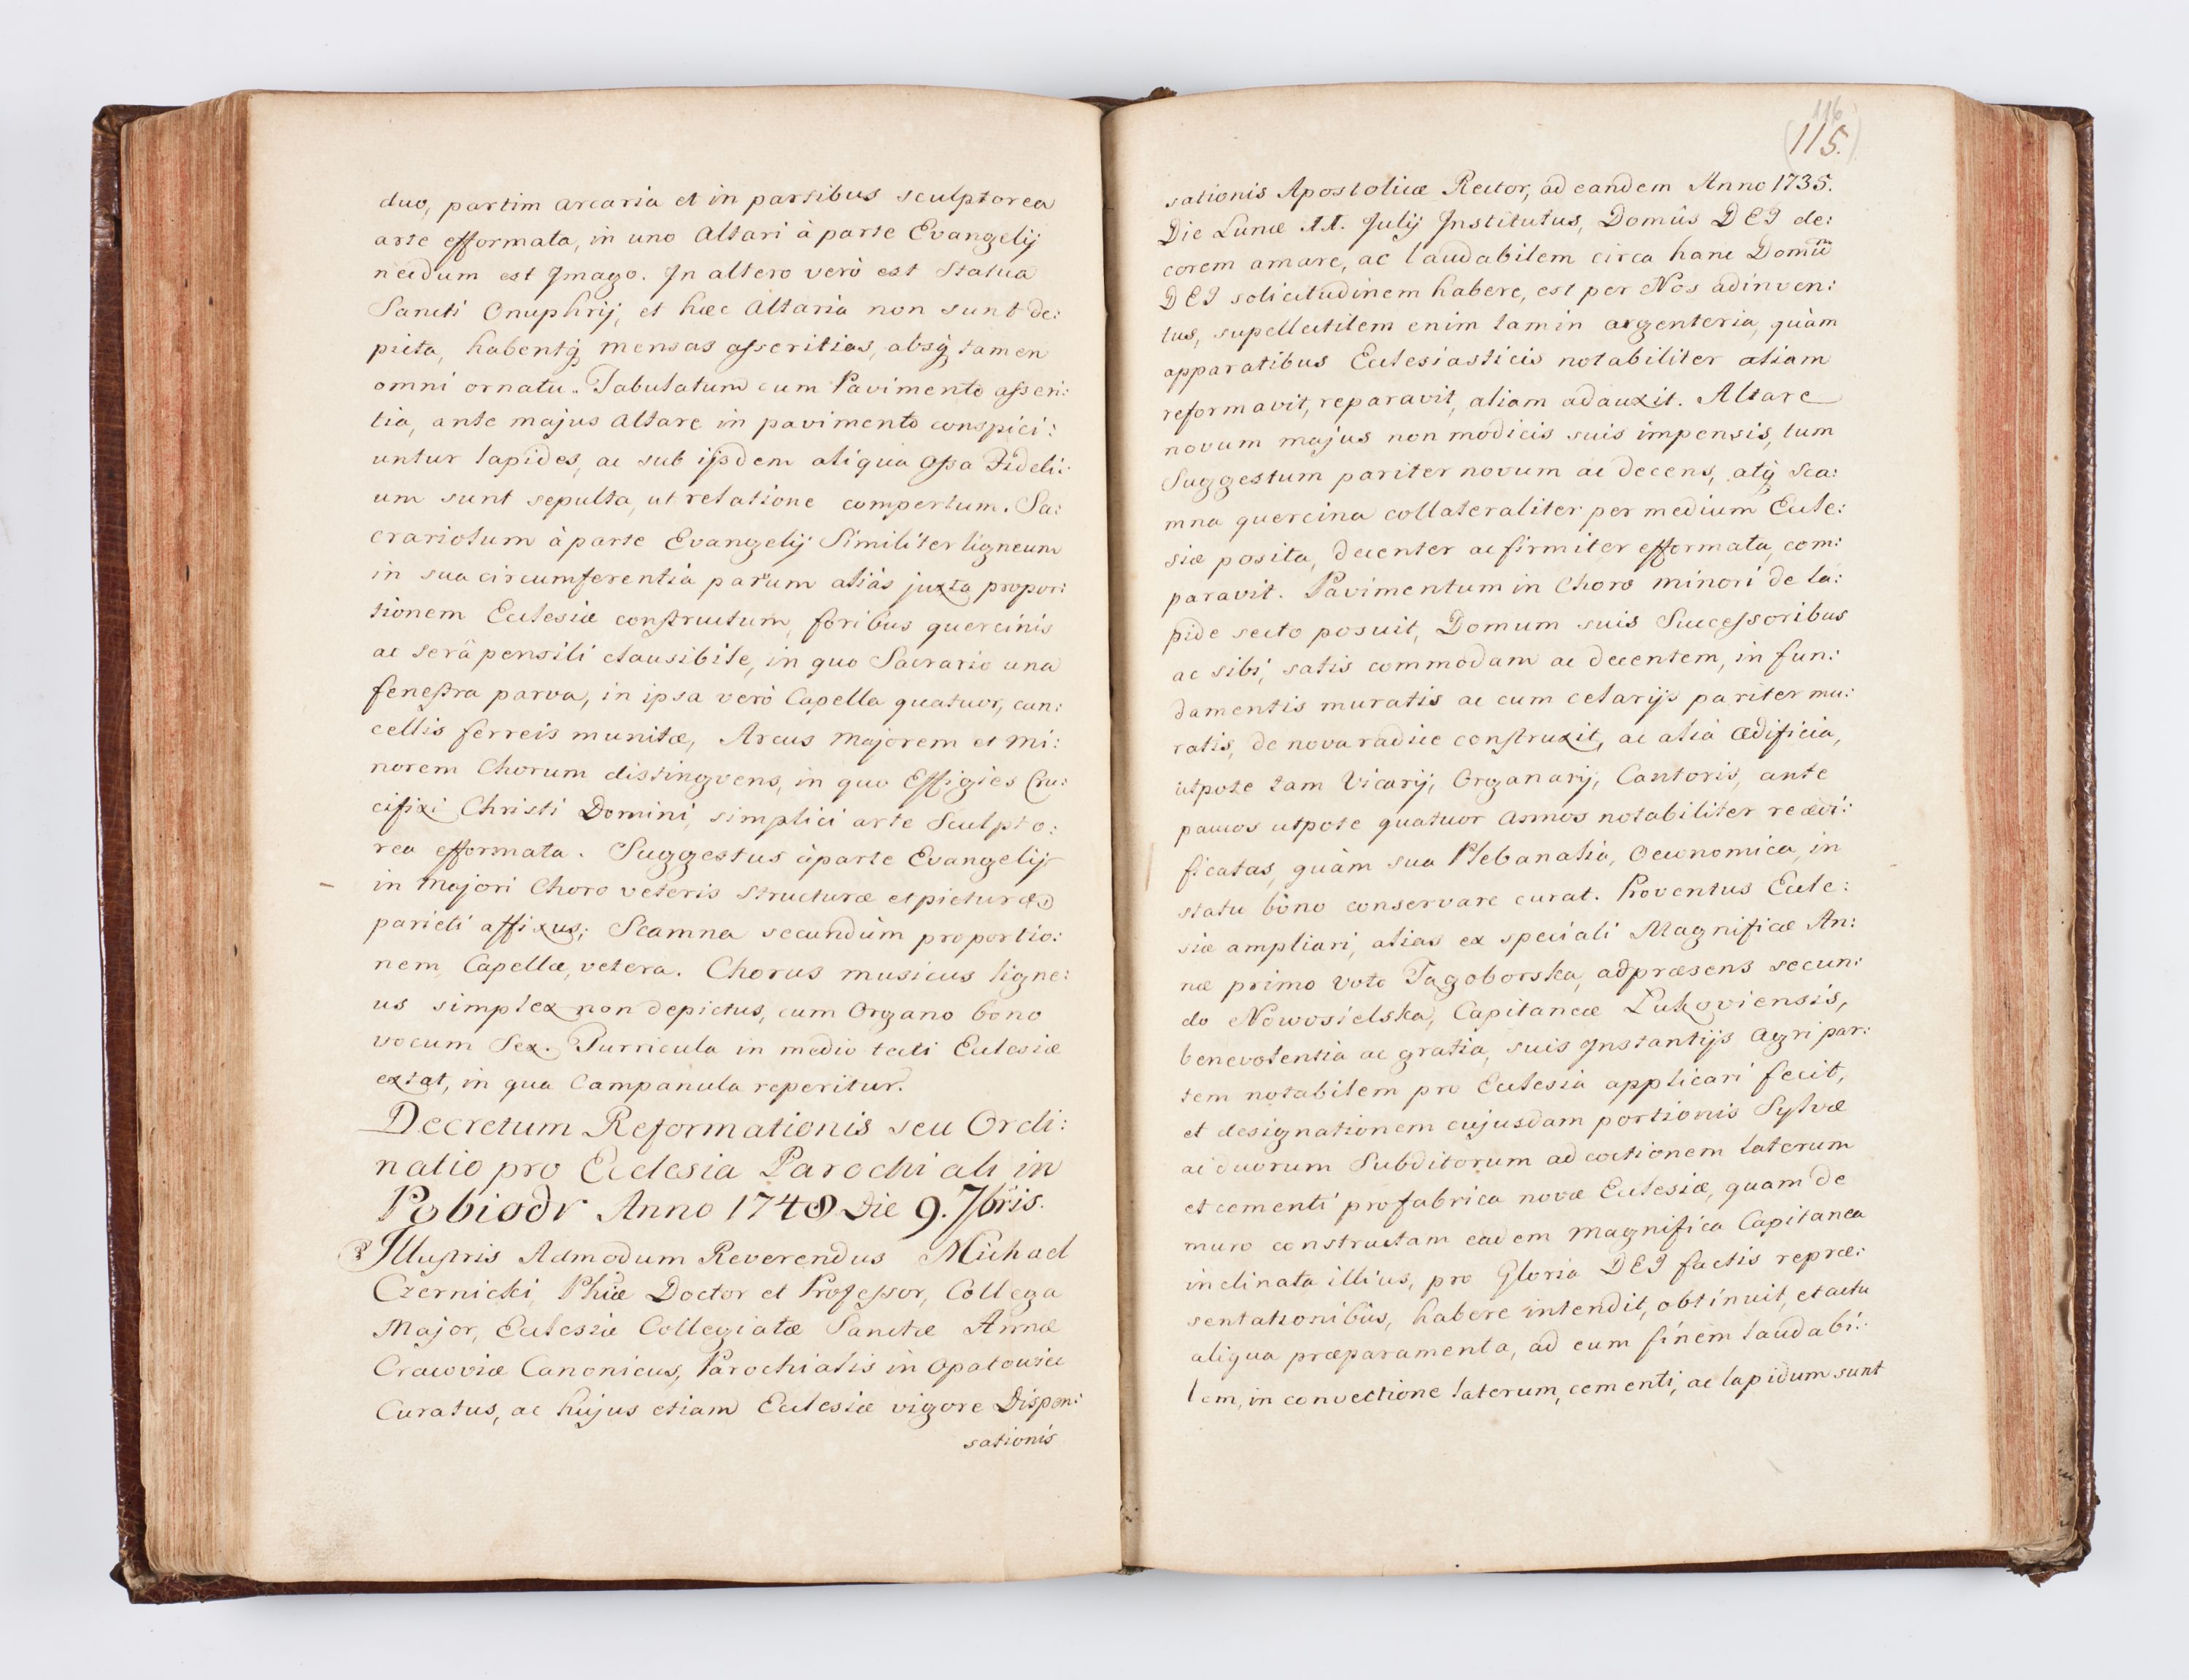 duo, partim arcaria et in partibus sculptorea
arte efformata, in uno Altari à parte Evangelij
necdum est Jmago. Jn altero verò est Statua
Sancti Onuphrij, et hæc Altaria non sunt de:
picta, habentq́ mensas asseritias, absq́ tamen
omni ornatu. Tabulatum cum Pavimento asseri:
tia, ante majus Altare in pavimento conspici:
untur lapides, ac sub ijsdem aliqua Ossa Fideli:
um sunt sepulta, ut relatione compertum. Sa:
crariolum à parte Evangelij Similiter ligneum
in sua circumferentia parum aliàs juxta propor:
tionem Ecclesiæ constructum, foribus quercinis
ac serâ pensili clausibile, in quo Sacrario una
fenestra parva, in ipsa verò Capella quatuor, can:
cellis ferreis munitæ, Arcus Majorem et Mi:
norem Chorum distingvens, in quo Effigies Cru:
cifixi Christi Domini simplici arte Sculpto:
rea efformata. Suggestus à parte Evangelij
in Majori Choro veteris Structuræ et picturæ
parieti affixus; Scamna secundùm proportio:
nem Capellæ, vetera. Chorus musicus ligne:
us simplex non depictus, cum Organo bono
vocum Sex. Turricula in medio tecti Ecclesiæ
extat, in qua Campanula reperitur.
Decretum Reformationis seu Ordi:
natio pro Ecclesia Parochiali in
Pobiodr Anno 1748 Die 9. 7bris.
Illustris Admodum Reverendus Michael
Czernicki, Phiæ Doctor et Professor, Collega
Major, Ecclesiæ Collegiatæ Sanctæ Annæ
Cracoviæ Canonicus, Parochialis in Opatowice
Curatus, ac hujus etiam Ecclesiæ vigore Dispen:
sationis
116
(115.)
sationis Apostolicæ Rector, ad eandem Anno 1735.
Die Lunæ 11. Julij Jnstitutus, Domûs DEJ de:
corem amare, ac laudabilem circa hanc Domũ
DEJ solicitudinem habere, est per Nos adinven:
tus, supellectilem enim tam in argenteria, quàm
apparatibus Ecclesiasticis notabiliter aliam
reformavit, reparavit, aliam adauxit. Altare
novum majus non modicis suis impensis, tum
Suggestum pariter novum ac decens, atq́ Sca:
mna quercina collateraliter per medium Eccle:
siæ posita, decenter ac firmiter efformata, com:
paravit. Pavimentum in Choro minori de la:
pide secto posuit, Domum suis Successoribus
ac sibi, satis commodam ac decentem, in fun:
damentis muratis ac cum celarijs pariter mu:
ratis, de nova radice construxit, ac alia ædificia,
utpote tam Vicarij, Organarij, Cantoris, ante
paucos utpote quatuor Annos notabiliter reædi:
ficatas, quàm sua Plebanalia, Oeconomica, in
statu bono conservare curat. Proventus Eccle:
siæ ampliari, alias ex speciali Magnificæ An:
næ primo voto Tagoborska, ad præsens secun:
do Nowosielska, Capitaneæ Lukoviensis,
benevolentia ac gratia, suis Jnstantijs Agri par:
tem notabilem pro Ecclesia applicari fecit,
et designationem cujusdam portionis Sylvæ
ac duorum Subditorum ad coctionem laterum
et cementi pro fabrica novæ Ecclesiæ, quam de
muro constructam eadem Magnifica Capitanea
inclinata illius, pro Gloria DEJ factis repræ:
sentationibus, habere intendit, obtinuit, et actu
aliqua præparamenta, ad eum finem laudabi:
lem, in convectione laterum, cementi, ac lapidum sunt